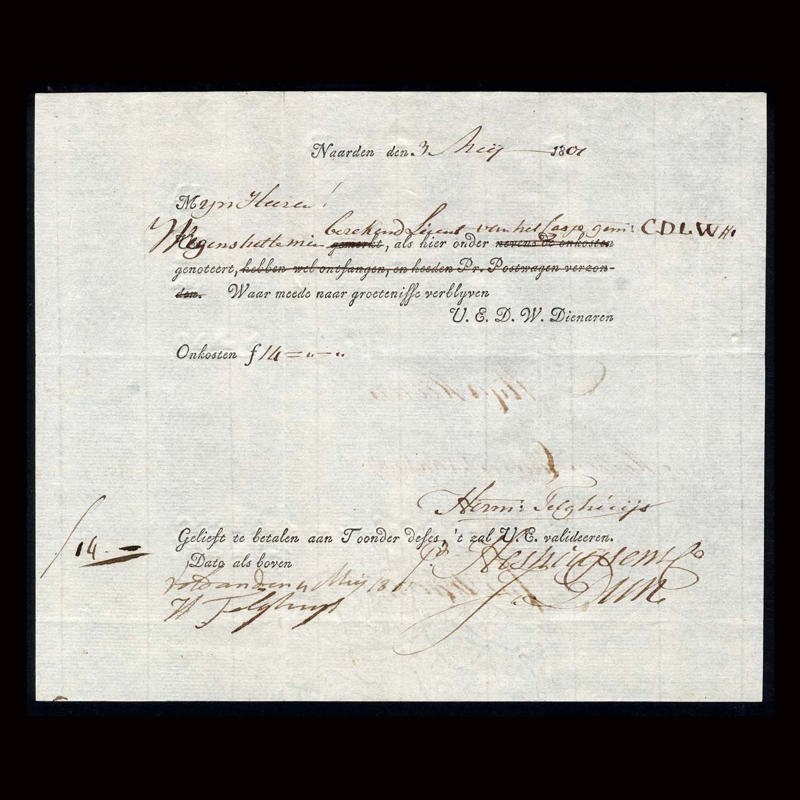 Naarden den 3 Meij 1801
Myn Heeren!
berekend van het gem: CDLW H.
Wegens het gemerkt, als hier onder nevens de onkosten
genoteert, hebben wel ontfangen, en heeden Pr. Postwagen verzon-
den. Waar meede naar groetenisse verblyven
U. E. D. W. Dienaren
Onkosten f 14 = „ – „
Herm: Telghuijs
f 14. –
Gelieft te betalen aan Toonder deses, 't zal U.E. valideeren.
Dato als boven
voldaan den 4 Meij 180
H Telghuijs